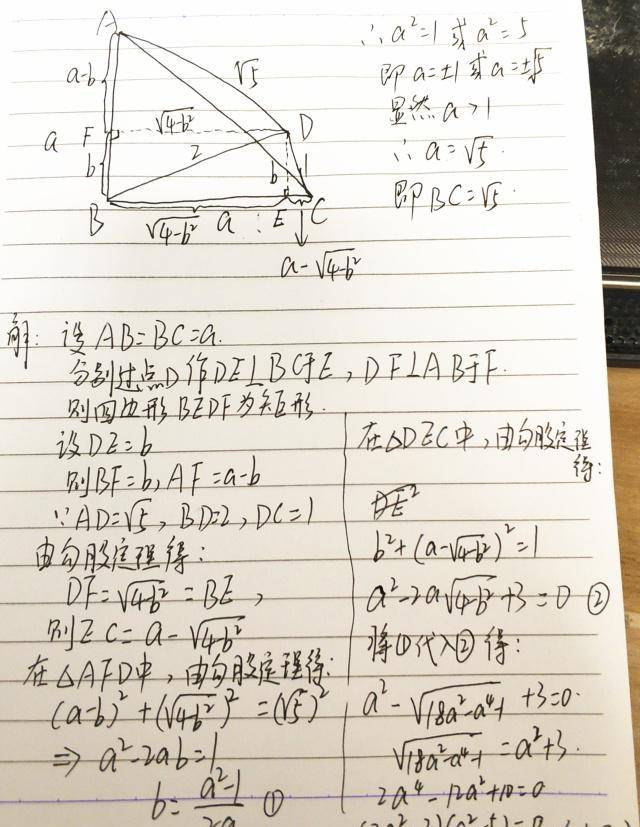 A
a-b
√5
√(4-b²)
a
F
D
2
b
b
1
B
√(4-b²)
a
E
C
a-√(4-b²)
∴a²=1 或 a²=5
即 a=±1 或 a=±√5
显然 a>1
∴ a=√5.
即 BC=√5.
解: 设 AB=BC=a.
分别过点D作DE⊥BC于E, DF⊥AB于F.
则四边形 BEDF 为矩形.
设DE=b
则BF=b, AF=a-b
∵AD=√5, BD=2, DC=1
由勾股定理得:
DF=√(4-b²)=BE,
则EC=a-√(4-b²)
在△AFD中,由勾股定理得:
(a-b)²+(√(4-b²))²=(√5)²
⇒ a²-2ab=1
b=(a²-1)/2a ①
在△DEC中,由勾股定理
得:
b²+(a-√(4-b²))²=1
a²-2a√(4-b²)+3=0 ②
将①代入②得:
a²-√(18a²-a⁴-1)+3=0.
√(18a²-a⁴-1)=a²+3.
2a⁴-12a²+10=0